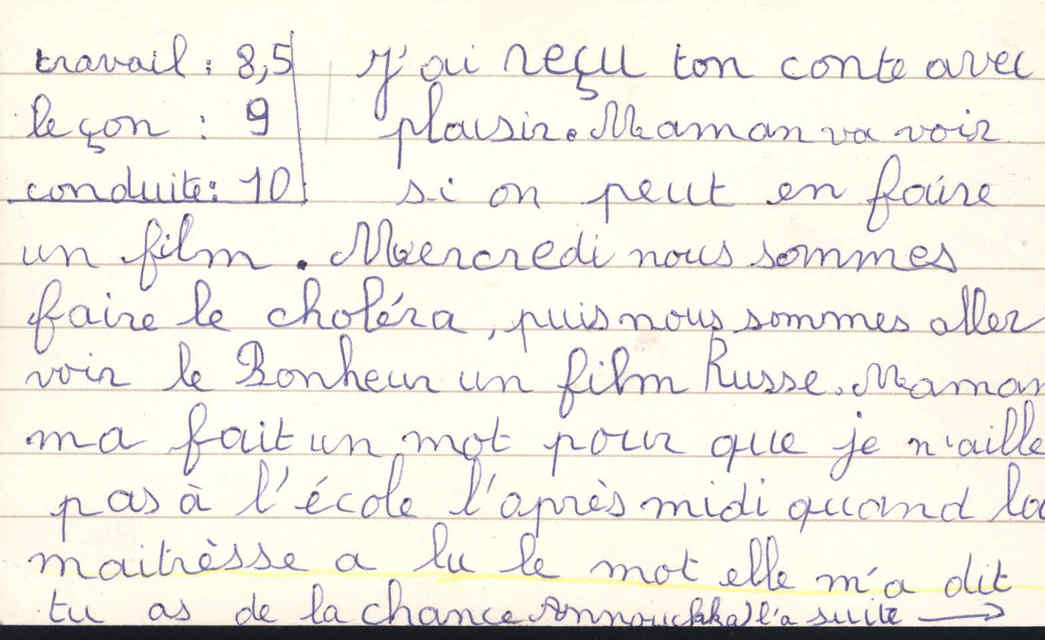 travail : 8,5 J'ai reçu ton conte avec
leçon : 9 plaisir. Maman va voir
conduite : 10 si on peut en faire
un film. Mercredi nous sommes
faire le choléra, puis nous sommes aller
voir le Bonheur un film Russe. Maman
ma fait un mot pour que je n'aille
pas à l'école l'après midi quand la
maitrèsse a lu le mot elle m'a dit
tu as de la chance Annouchka) l'a suite →